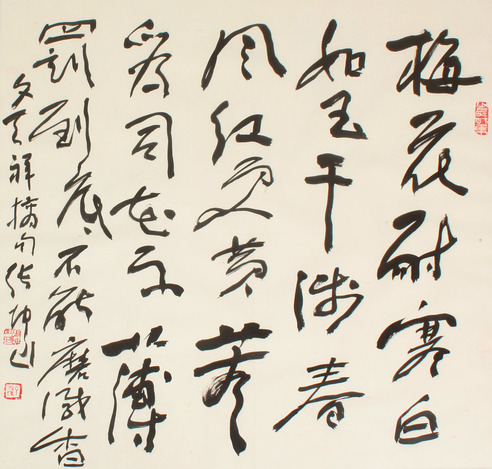 梅花耐寒白
如玉干涉春
风红更黄若
為司花示薄
罰到底不能磨滅香
文天祥摘句张坤山